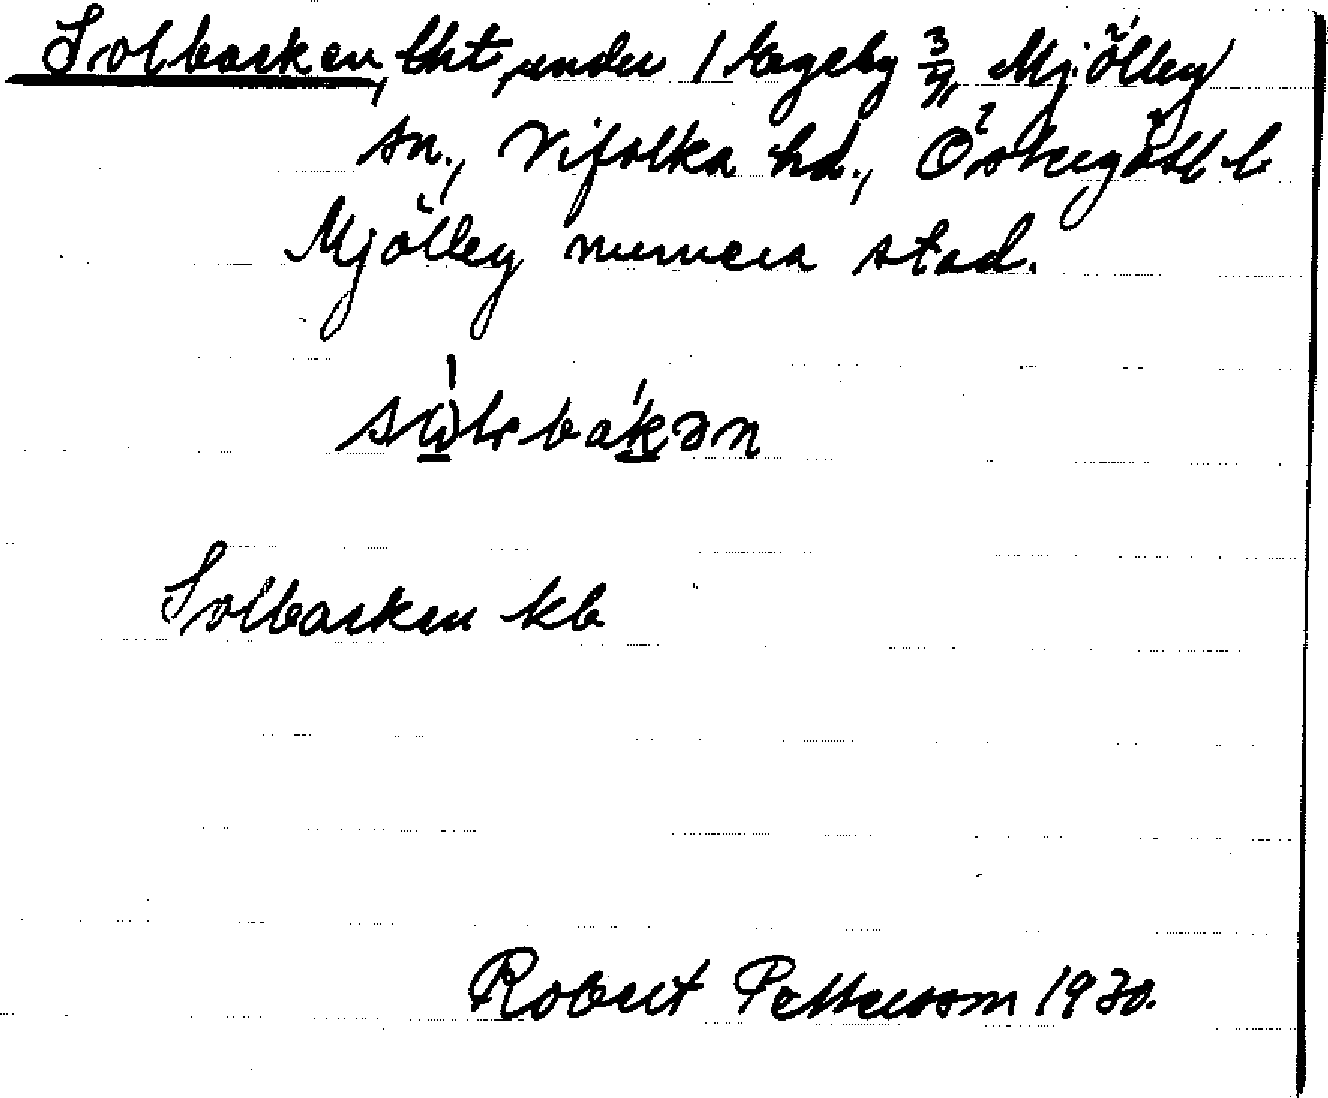 Solbacken, lht, under 1 Egeby 3/4 Mjölby
sn., Vifolka hd., Östergötl. l.
Mjölby numera stad.
Solbacken kb
Robert Pettersson 1930.